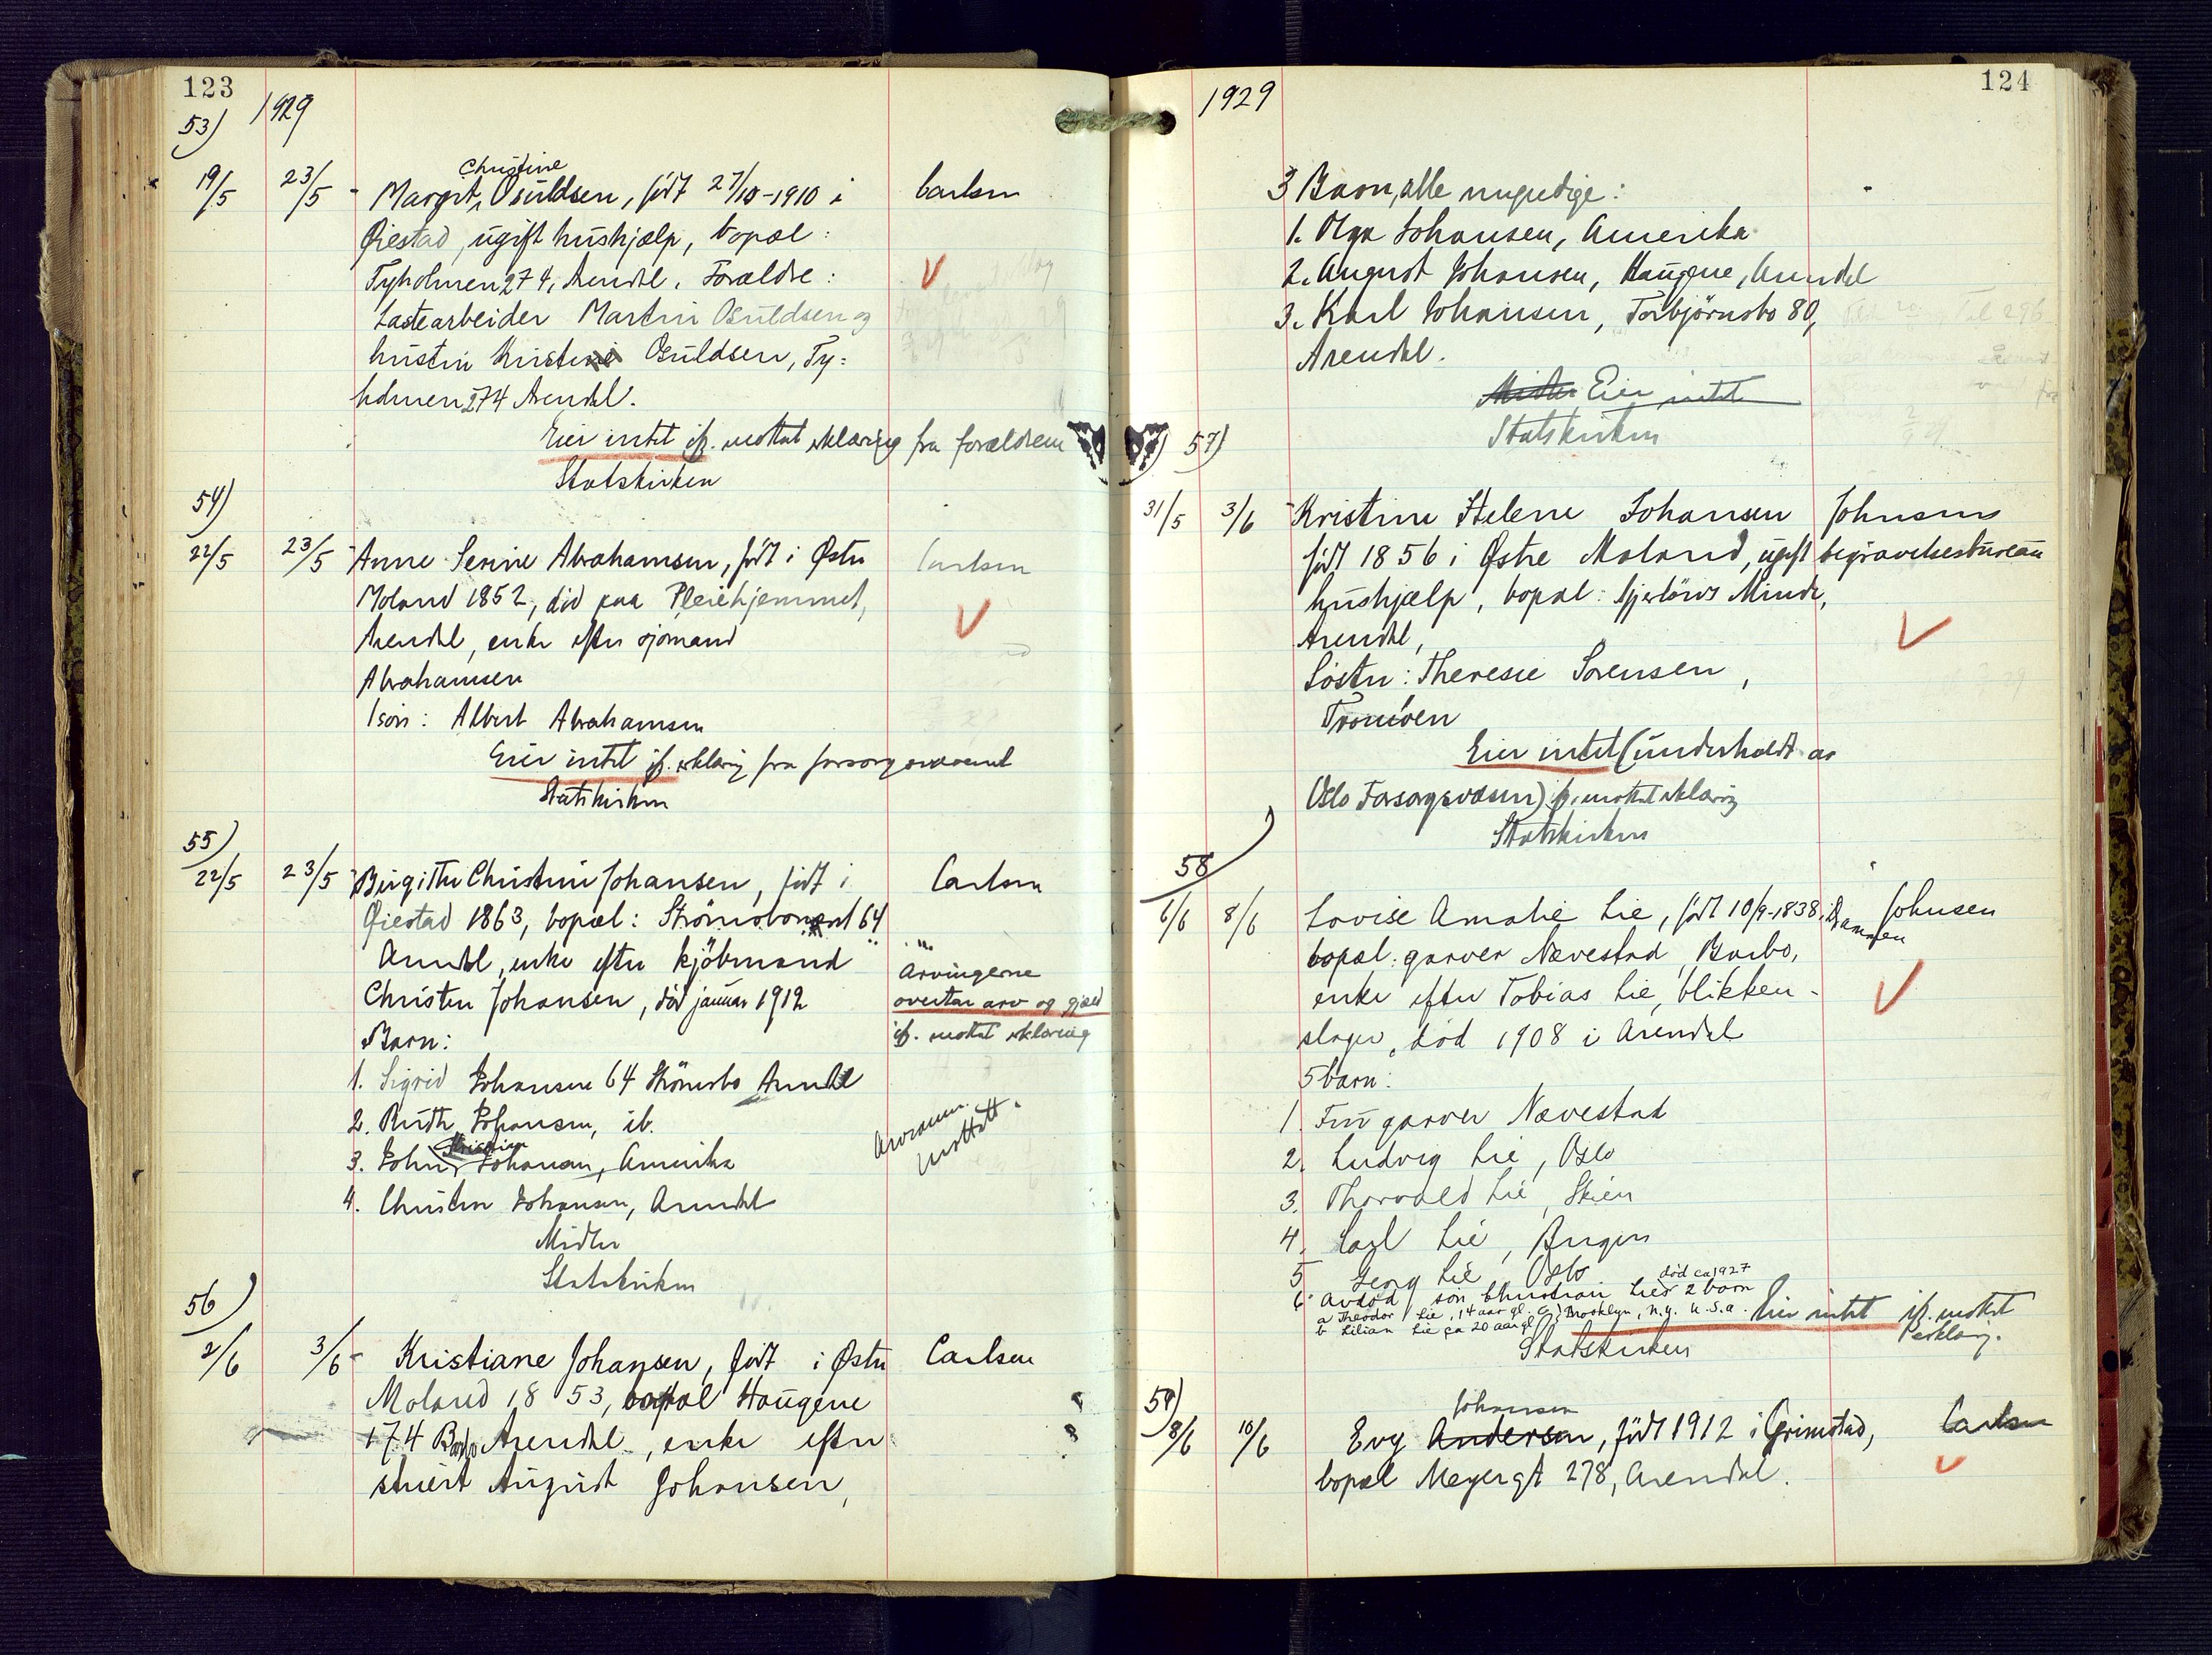 123
1929
53)
19/5 23/5 - Margit Christine Osuldsen, født 27/10-1910 i Carlsen
Øiestad, ugift hushjælp, bopæl:
Tyholmen 274, Arendal. Forældre:
Lastearbeider Martin Osuldsen og
hustru Kristine Osuldsen, Ty=
holmen 274 Arendal.
Eier intet if. mottat erklæring fra forældrene
Statskirken
54)
22/5 23/5 - Anne Serine Abrahamsen, født i Østre Carlsen
Moland 1852, død paa Pleiehjemmet,
Arendal, enke efter sjømand
Abrahamsen
1 søn: Albert Abrahamsen
Eier intet if. erklæring fra forsorgsvæsenet
Statskirken
55)
22/5 23/5 - Birgithe Christine Johansen, født i Carlsen
Øiestad 1863, bopæl: Strømsbo 64
Arendal, enke efter kjøbmand
Christen Johansen, død januar 1912
Arvingerne
overtar arv og gjæld
if. mottat erklæring
Barn:
1. Sigrid Johansen 64 Strømsbo Arendal
2. Ruth Johansen, ib.
3. John Johansen, Amerika
4. Christen Johansen, Arendal
mottatt.
Midler
Statskirken
56)
2/6 3/6 - Kristiane Johansen, født i Østre Carlsen
Moland 1853, bopæl Haugene
174 Barbo Arendal, enke efter
stuert August Johansen,
124
1929
3 Barn, alle myndige:
1. Olga Johansen, Amerika
2. August Johansen, Haugene, Arendal
3. Karl Johansen, Torbjørnsbo 80,
Arendal.
Midler Eier intet
Statskirken
57)
31/5 3/6 - Kristine Helene Johansen Johnsens
født 1856 i Østre Moland, ugift begravelsesbureau
hushjælp, bopæl: Minde,
Arendal,
Søster: Theresie Sørensen,
Tromøen
Eier intet (underholdt av
Oslo Forsorgsvæsen) if. mottat erklæring
Statskirken
58
6/6 8/6 Lovise Amalie Lie, født 10/9-1838, Drammen Johnsen
bopæl: garver Nævestad, Barbo,
enke efter Tobias Lie, blikken-
slager, død 1908 i Arendal
5 barn:
1. Fru garver Nævestad
2. Ludvig Lie, Oslo
3. Thorvald Lie, Skien
4. Carl Lie, Bergen
5 Georg Lie, Oslo
6 avdød søn Christian Lies 2 barn død ca 1927
a Theodor Lie, 14 aar gl. Brooklyn, N.Y. U.S.A.
b Lilian Lie ca 20 aar gl
Eier intet if. mottat
erklæring.
Statskirken
59)
8/6 10/6 Evy Andersen Johansen, født 1912 i Grimstad, Carlsen
bopæl Meyergt 278, Arendal.